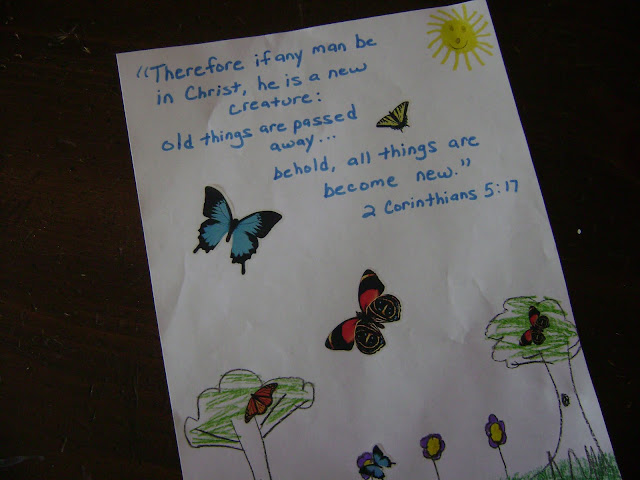 "Therefore if any man be
in Christ, he is a new
creature:
old things are passed
away...
behold, all things are
become new."
2 Corinthians 5:17